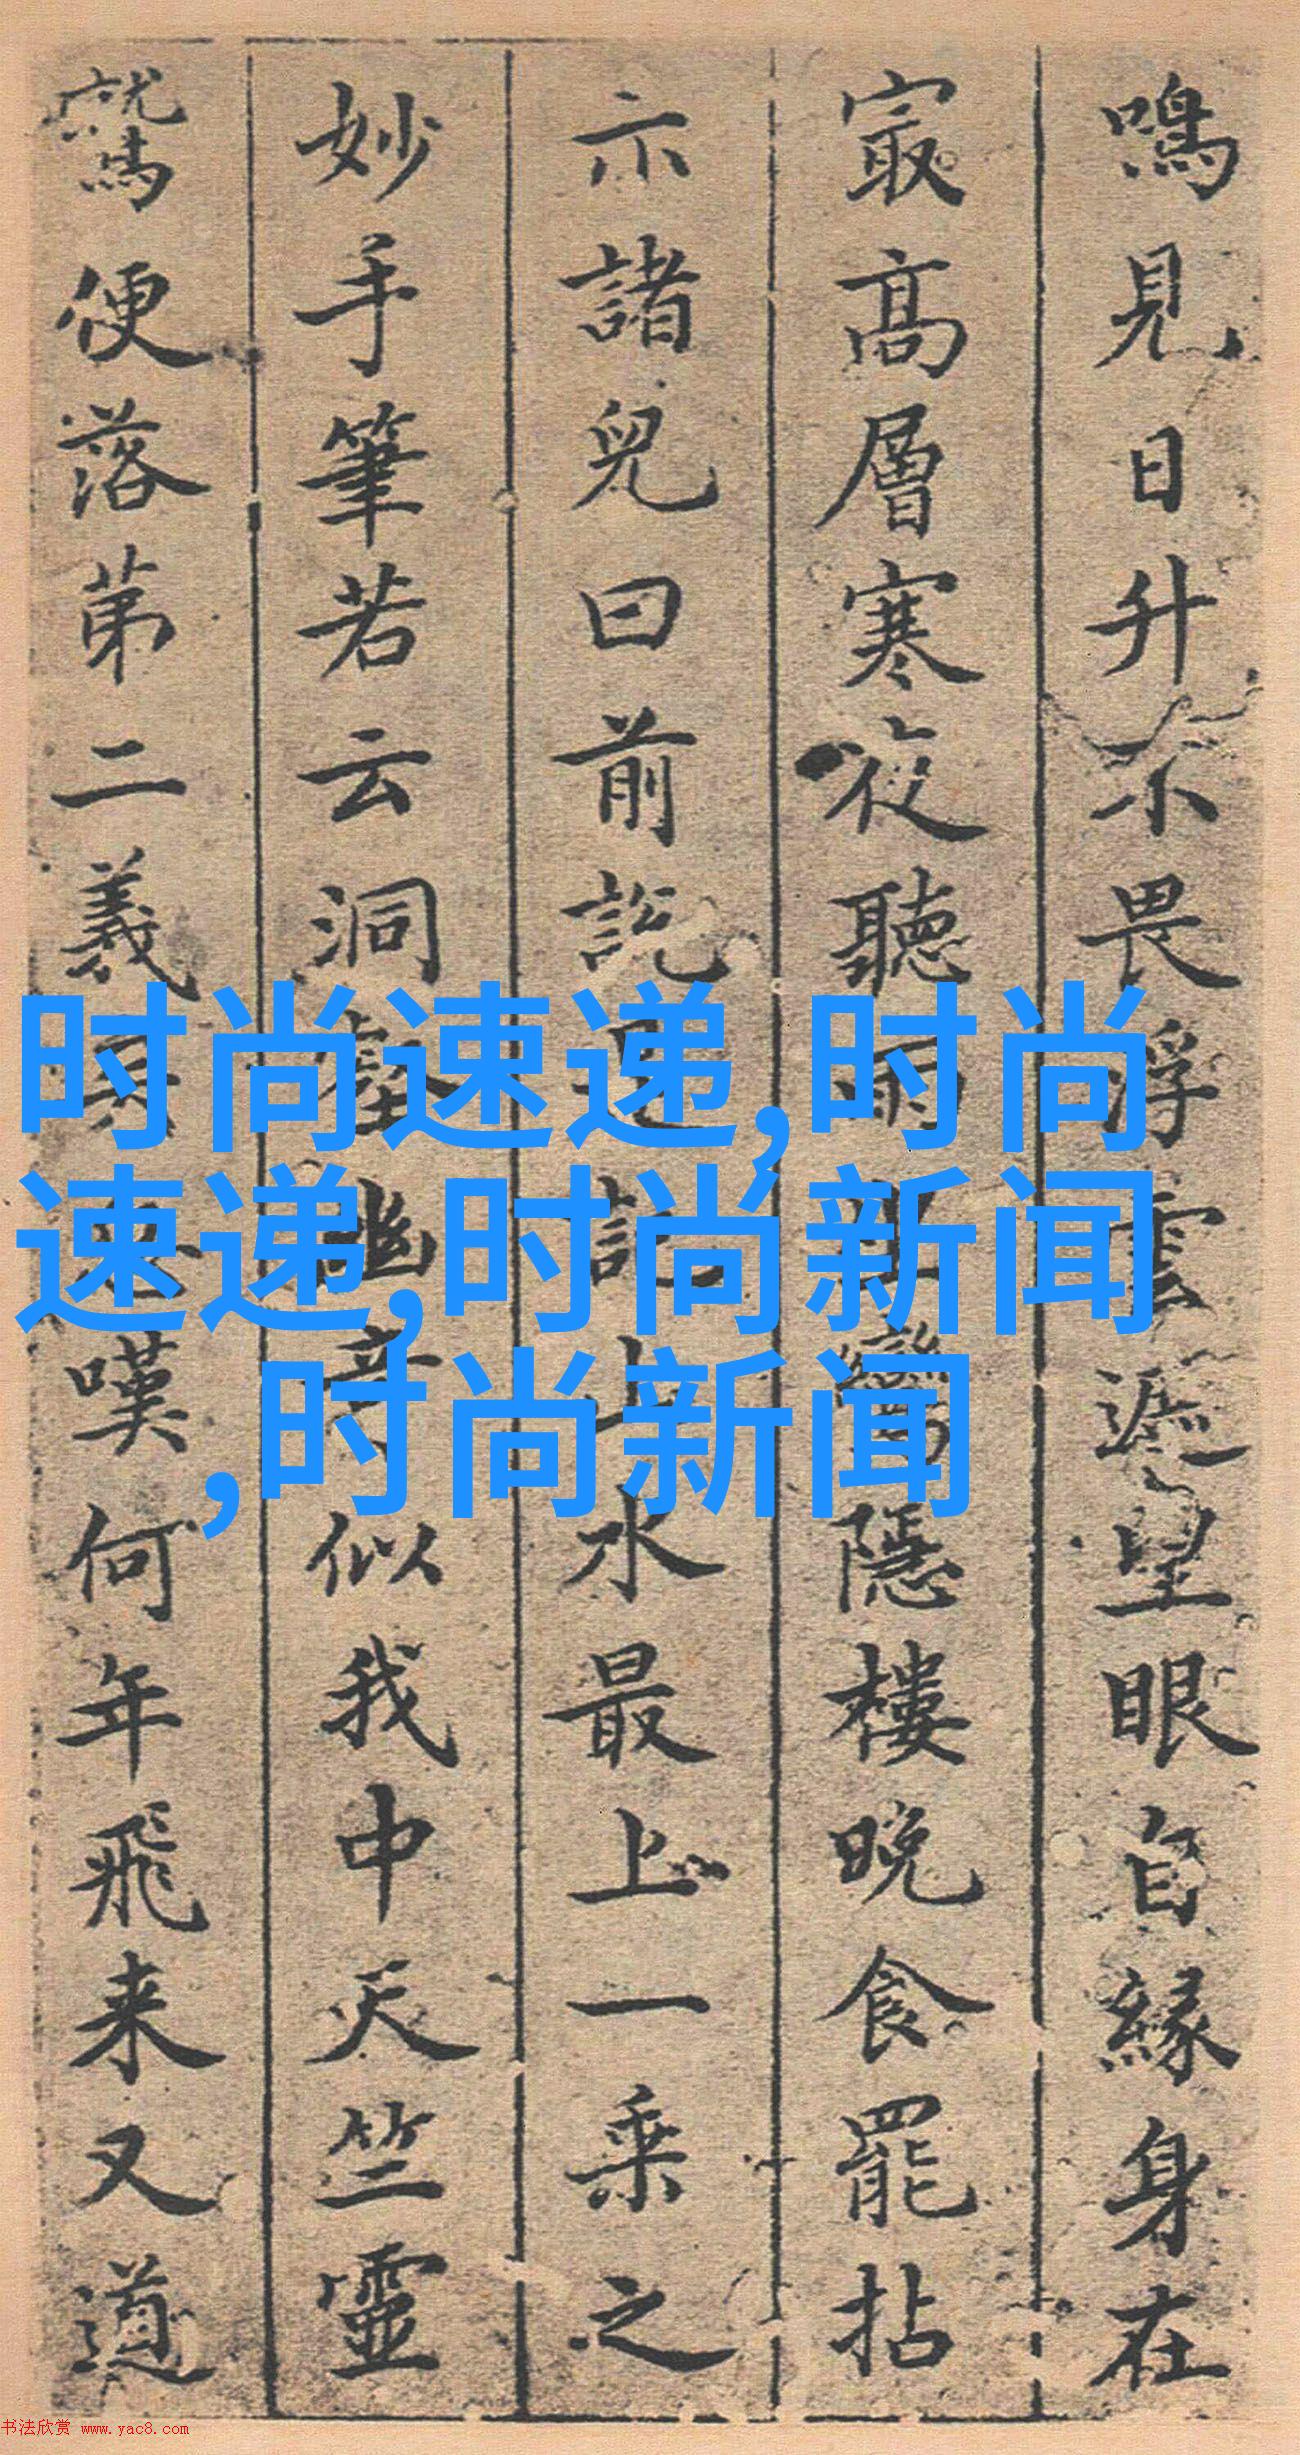 鳴見日升不畏浮雲遮望眼自緣身在
㝡高層寒夜聽雨隱樓晚食罷拈
示諸兒曰前說水最上一乘之
妙手筆若云洞壑幽奇似我中天竺靈
鷲便落第二義嘆何年飛来又道
时尚速递,时尚
速递,时尚新闻
,时尚新闻
书法欣赏 www.yac8.com